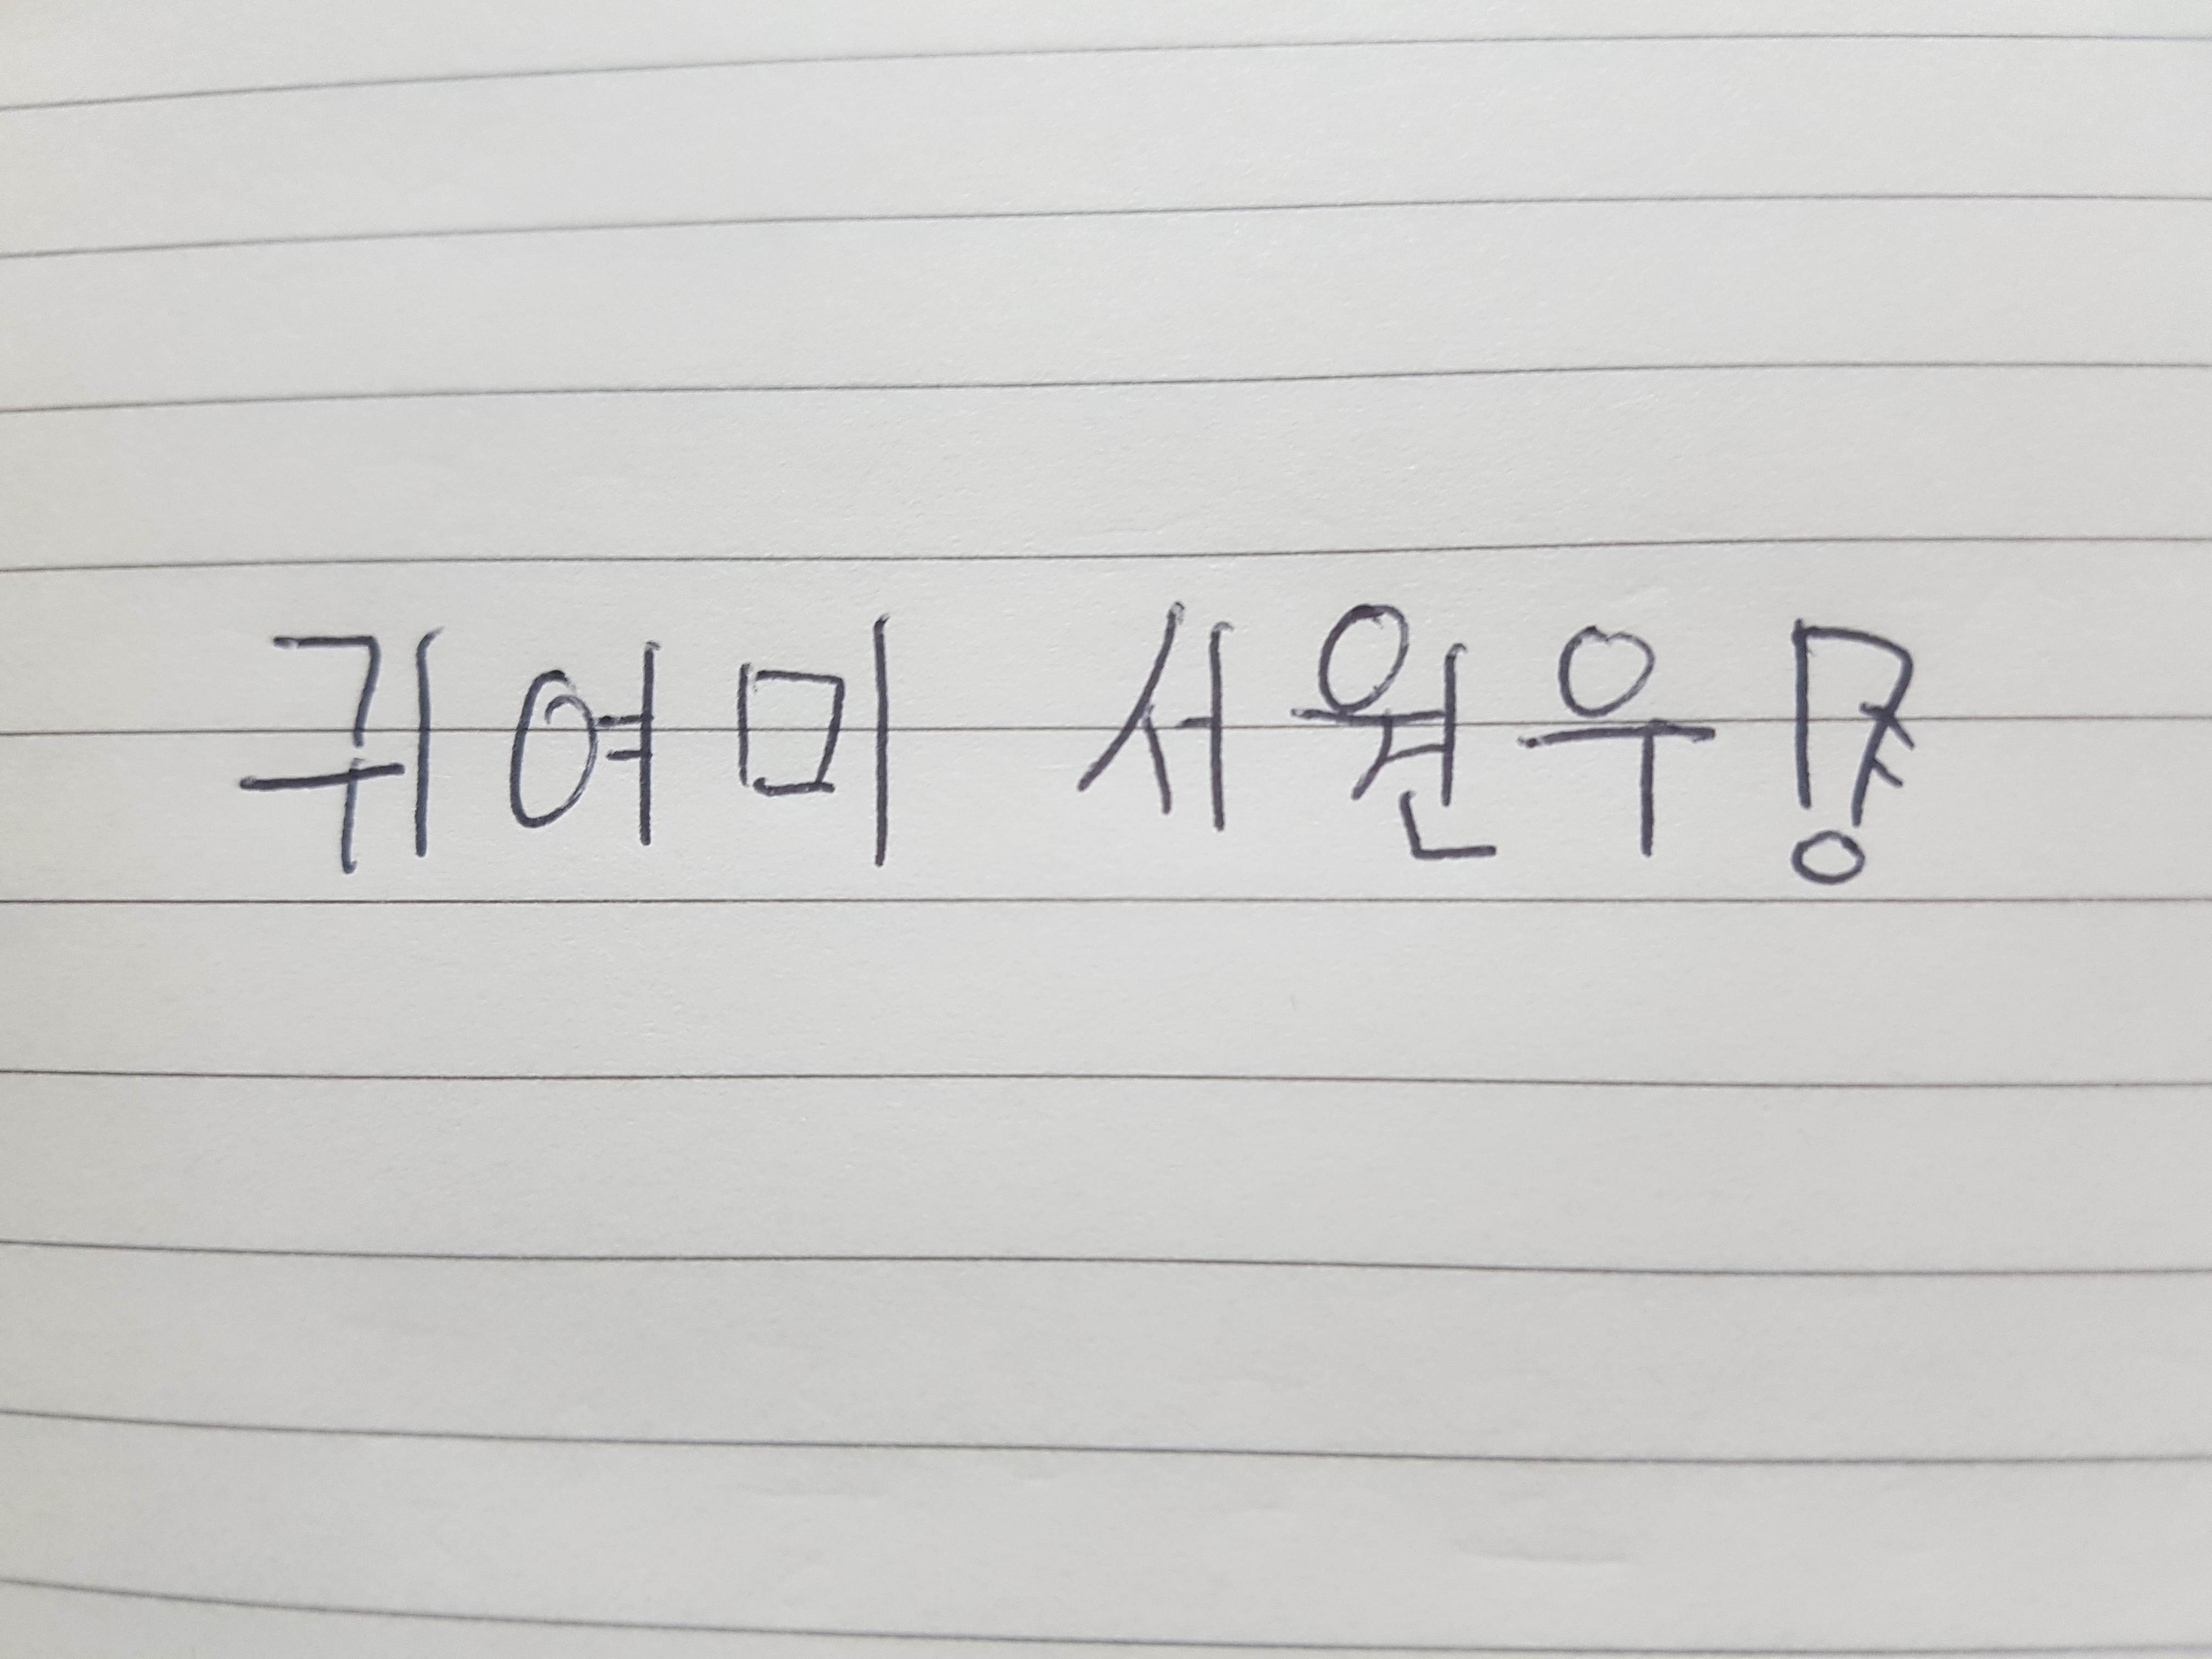 귀여미 서원우